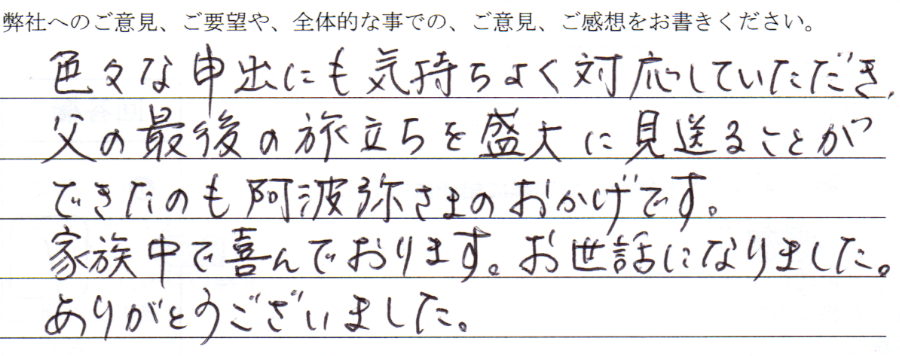 弊社へのご意見、ご要望や、全体的な事での、ご意見、ご感想をお書きください。
色々な申出にも気持ちよく対応していただき、
父の最後の旅立ちを盛大に見送ることが
できたのも阿波弥さまのおかげです。
家族中で喜んでおります。お世話になりました。
ありがとうございました。